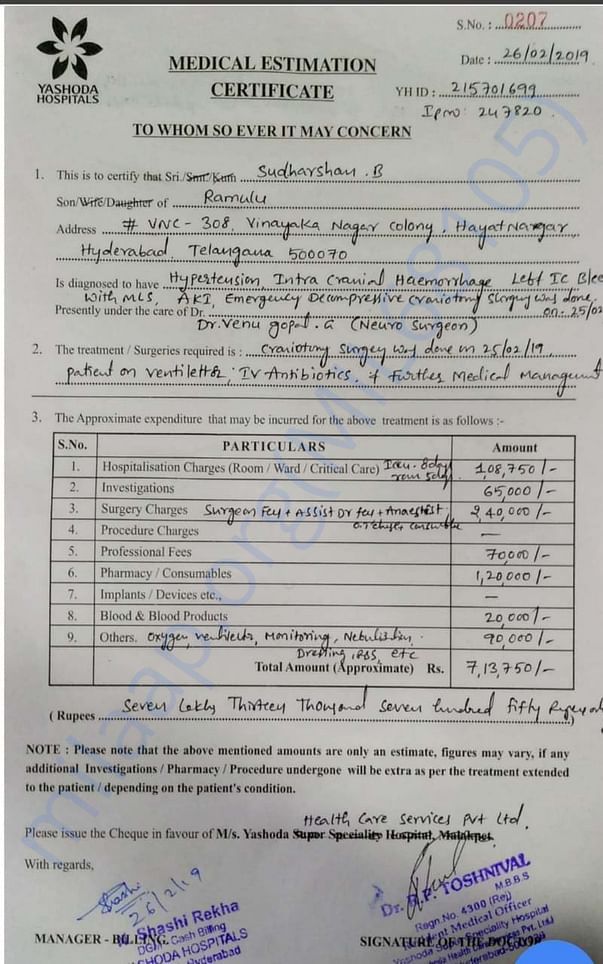 S.No. : 0207
YASHODA
HOSPITALS
MEDICAL ESTIMATION
CERTIFICATE
Date : 26/02/2019
YH ID : 215701699
Ip no: 247820
TO WHOM SO EVER IT MAY CONCERN
1. This is to certify that Sri./Smt/Kum Sudharshan . B
Son/Wife/Daughter of Ramulu
Address # VNC - 308, Vinayaka Nagar Colony, Hayat Nargar
Hyderabad, Telangana 500070
Is diagnosed to have Hypertension, Intra Cranial Haemorrhage Left Ic Blee
with MLS, AKI, Emergency Decompressive craniotomy surgery was done
Presently under the care of Dr. on - 25/02
Dr. Venu gopal . G (Neuro Surgeon)
2. The treatment / Surgeries required is : Craniotomy Surgey was done on 25/02/19
patient on ventilettor, IV Antibiotics, + Further Medical Management
3. The Approximate expenditure that may be incurred for the above treatment is as follows :-
S.No. PARTICULARS Amount
1. Hospitalisation Charges (Room / Ward / Critical Care) 1,08,750/-
2. Investigations 65,000/-
3. Surgery Charges Surgeon Fey + Assist Dr fey + Anaestist 2,40,000/-
4. Procedure Charges —
5. Professional Fees 70,000/-
6. Pharmacy / Consumables 1,20,000/-
7. Implants / Devices etc., —
8. Blood & Blood Products 20,000/-
9. Others. Oxygen, ventilector, Monitoring, 90,000/-
Dressing, etc
Total Amount (Approximate) Rs. 7,13,750/-
( Rupees Seven Lakhs Thirteen Thousand Seven hundred fifty Rupey )
NOTE : Please note that the above mentioned amounts are only an estimate, figures may vary, if any
additional Investigations / Pharmacy / Procedure undergone will be extra as per the treatment extended
to the patient / depending on the patient's condition.
Health Care Services Pvt Ltd.
Please issue the Cheque in favour of M/s. Yashoda Super Speciality Hospital, Malakpet.
With regards,
Shashi
26/2/19
Shashi Rekha
DGM - Cash Billing
YASHODA HOSPITALS
Hyderabad
MANAGER - BILLING.
Dr. R.P. TOSHNIVAL
M.B.B.S
Regn.No. 4300 (Rej)
Resident Medical Officer
Yashoda Super Speciality Hospital
Health Care Services Pvt. Ltd.
SIGNATURE OF THE DOCTOR